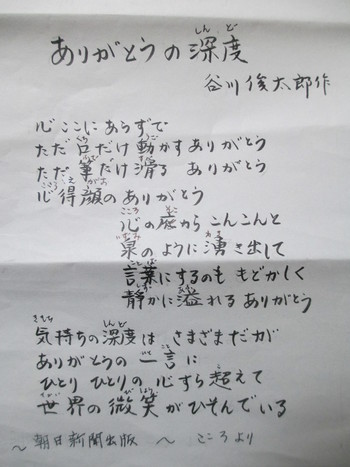 ありがとうの深度
谷川俊太郎作
心ここにあらずで
ただ口だけ動かすありがとう
ただ筆だけ滑る ありがとう
心得顔のありがとう
心の底からこんこんと
泉のように湧き出して
言葉にするのももどかしく
静かに溢れるありがとう
気持ちの深度は さまざまだが
ありがとうの 一言に
ひとり ひとりの 心すら超えて
世界の微笑がひそんでいる
～朝日新聞出版 ～ こころより